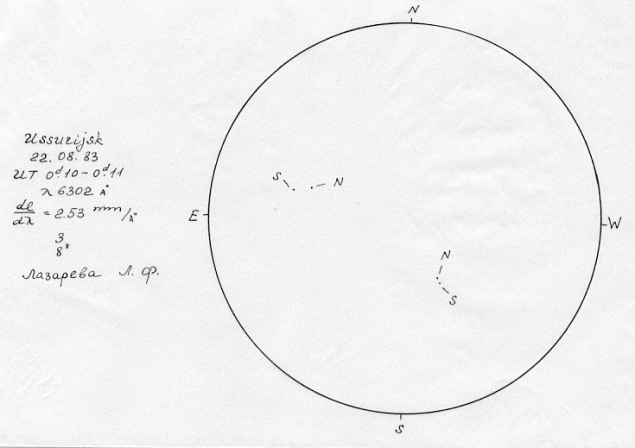 N
Ussurijsk
22.08.83
UT 0ᵈ.10–0ᵈ.11
λ 6302 Å
dl/dλ = 2.53 mm/Å
3
8"
Лазарева Л. Ф.
S N
E
W
N
S
S